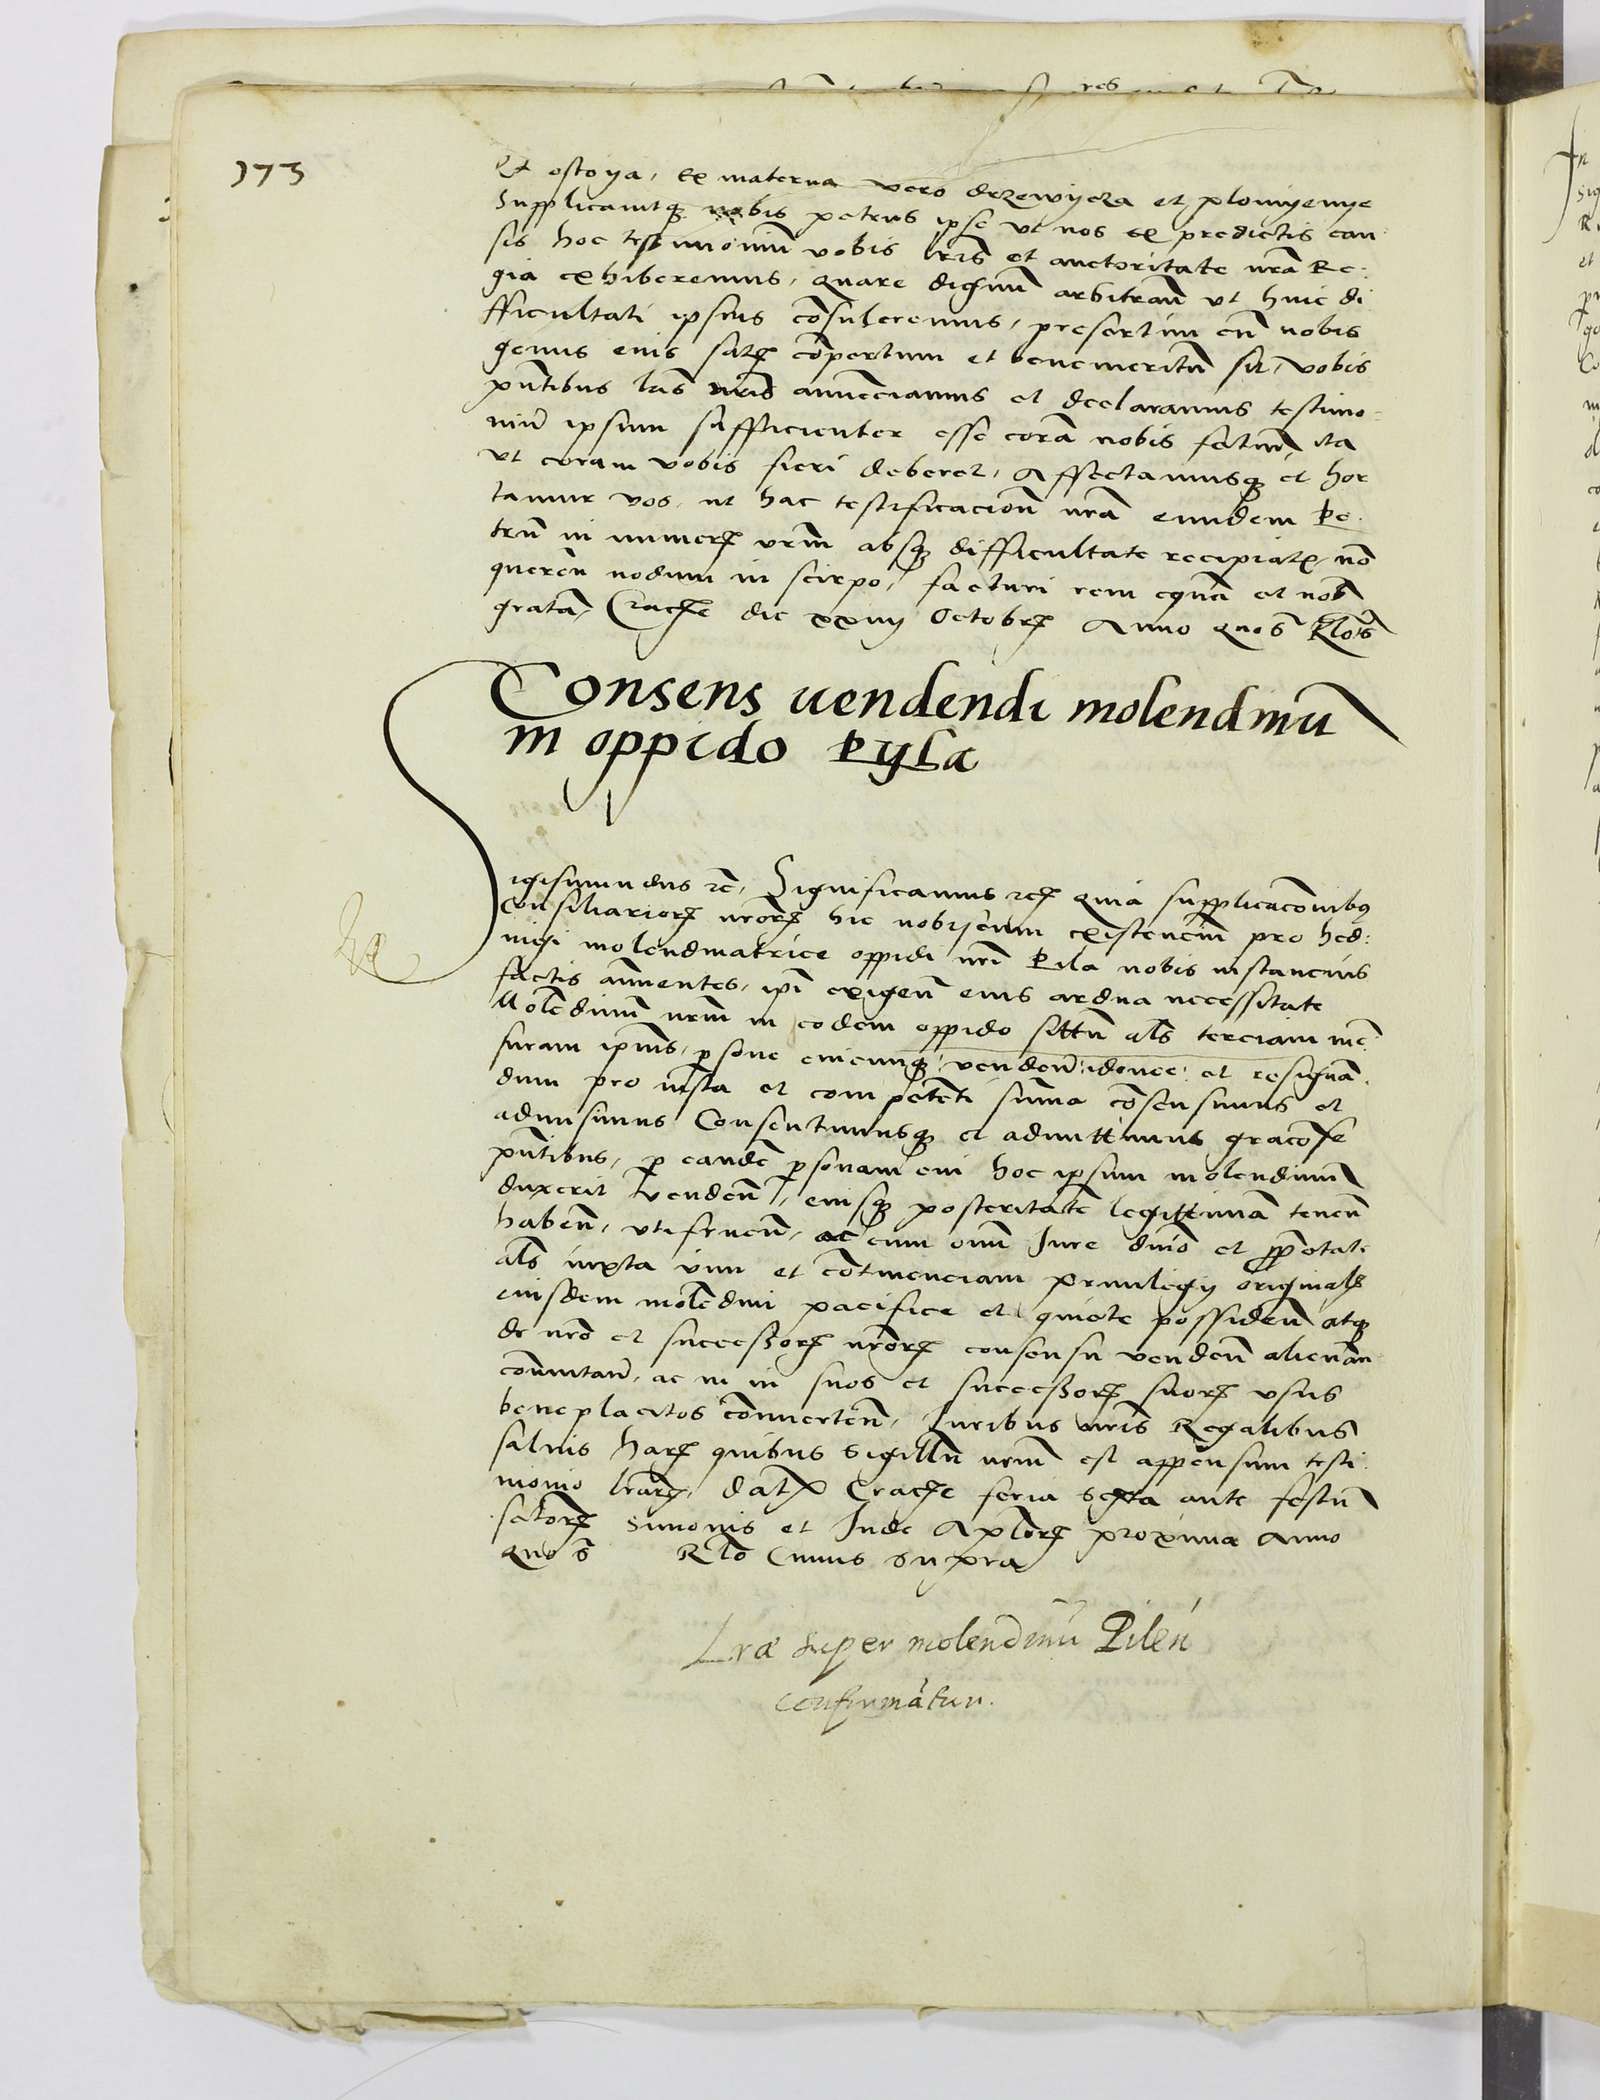 173
Et ostoya, ex materna vero drzewycza et plomyenye
Supplicavitq nobis petrus ipse vt nos ex predictis cau
sis hoc testimoniu vobis lris et auctoritate nra Re:
gia exhiberemus, quare dignu arbitrati vt huic di
fficultati ipsius cosuleremus, presertim cu nobis
genus eius satis copertum et benemeritu sit, vobis
pntibus lris nris annucciamus et declaramus testimo
niu ipsum sufficienter esse cora nobis factum ita
vt coram vobis fieri deberet, Affectamusq et hor
tamur vos, ut hac testificacion nra eundem Pe
tru in numerum vrm absq difficultate recipiatis, no
queren nodum in scirpo, facturi rem equa et nob
grata, Cracovie die xxiiij Octobris Anno quo s Rlois
Consens uendendi molendinu
in oppido Pyla
Sigismundus rc, Significamus rc quia supplicaconibus
Consiliarioru nroru hic nobiscum existencium pro hed:
wigi molendinatrice oppidi nri Pila nobis instancius
factis annuentes, ipi exigen eius ardua necessitate
Molendinu nrm in eodem oppido situ als terciam me
suram ipius, psone cuicunq venden idonee et resignan
dum pro iusta et competenti suma cosensimus et
admisimus Consentimusq et admittimus graciose
pntibus, p eande psonam cui hoc ipsum molendinu
duxerit venden, eiusq posteritate legittima tenen
haben, utifruen, ac cum omni Jure dnio et pprietate
als iuxta vim et cotinenciam privilegij originalis
eiusdem molendini pacifice et quiete possiden atq
de nro et successoru nroru consensu venden alienan
comutan, ac in in suos et successoru suoru vsus
beneplacitos conuerten, Juribus nris Regalibus
saluis haru quibus sigillu nrm est appensum testi
monio lraru, Dat Cracovie feria sexta ante festu
sctoru Simonis et Jude Aploru proxima Anno
quo s Rlo Cuius supra
Lræ super molendinu Pilen
confirmatur.